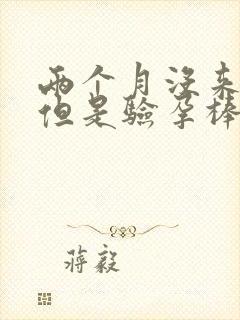 两个月没来
但是验孕棒
蒋毅